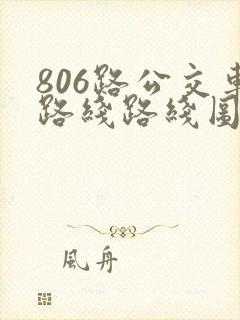 806路公交車
路綫路綫圖
風舟